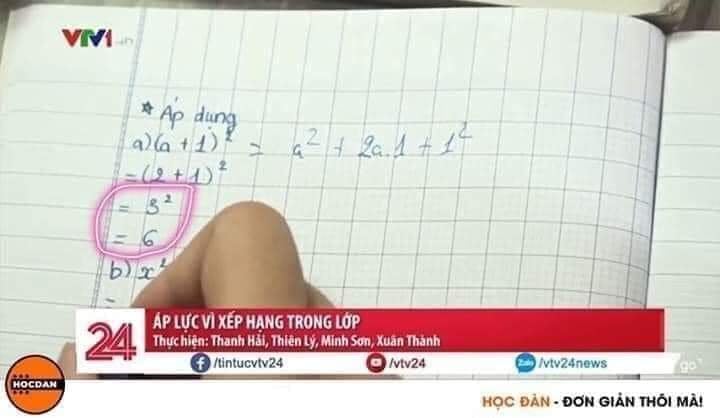 VTV1
* Áp dụng
a) (a + 1)² = a² + 2a.1 + 1²
= (2 + 1)²
= 3²
= 6
b) x²
=
24
ÁP LỰC VÌ XẾP HẠNG TRONG LỚP
Thực hiện: Thanh Hải, Thiên Lý, Minh Sơn, Xuân Thành
/tintucvtv24
/vtv24
Zalo /vtv24news
go
HOCDAN
HỌC ĐÀN - ĐƠN GIẢN THÔI MÀ!